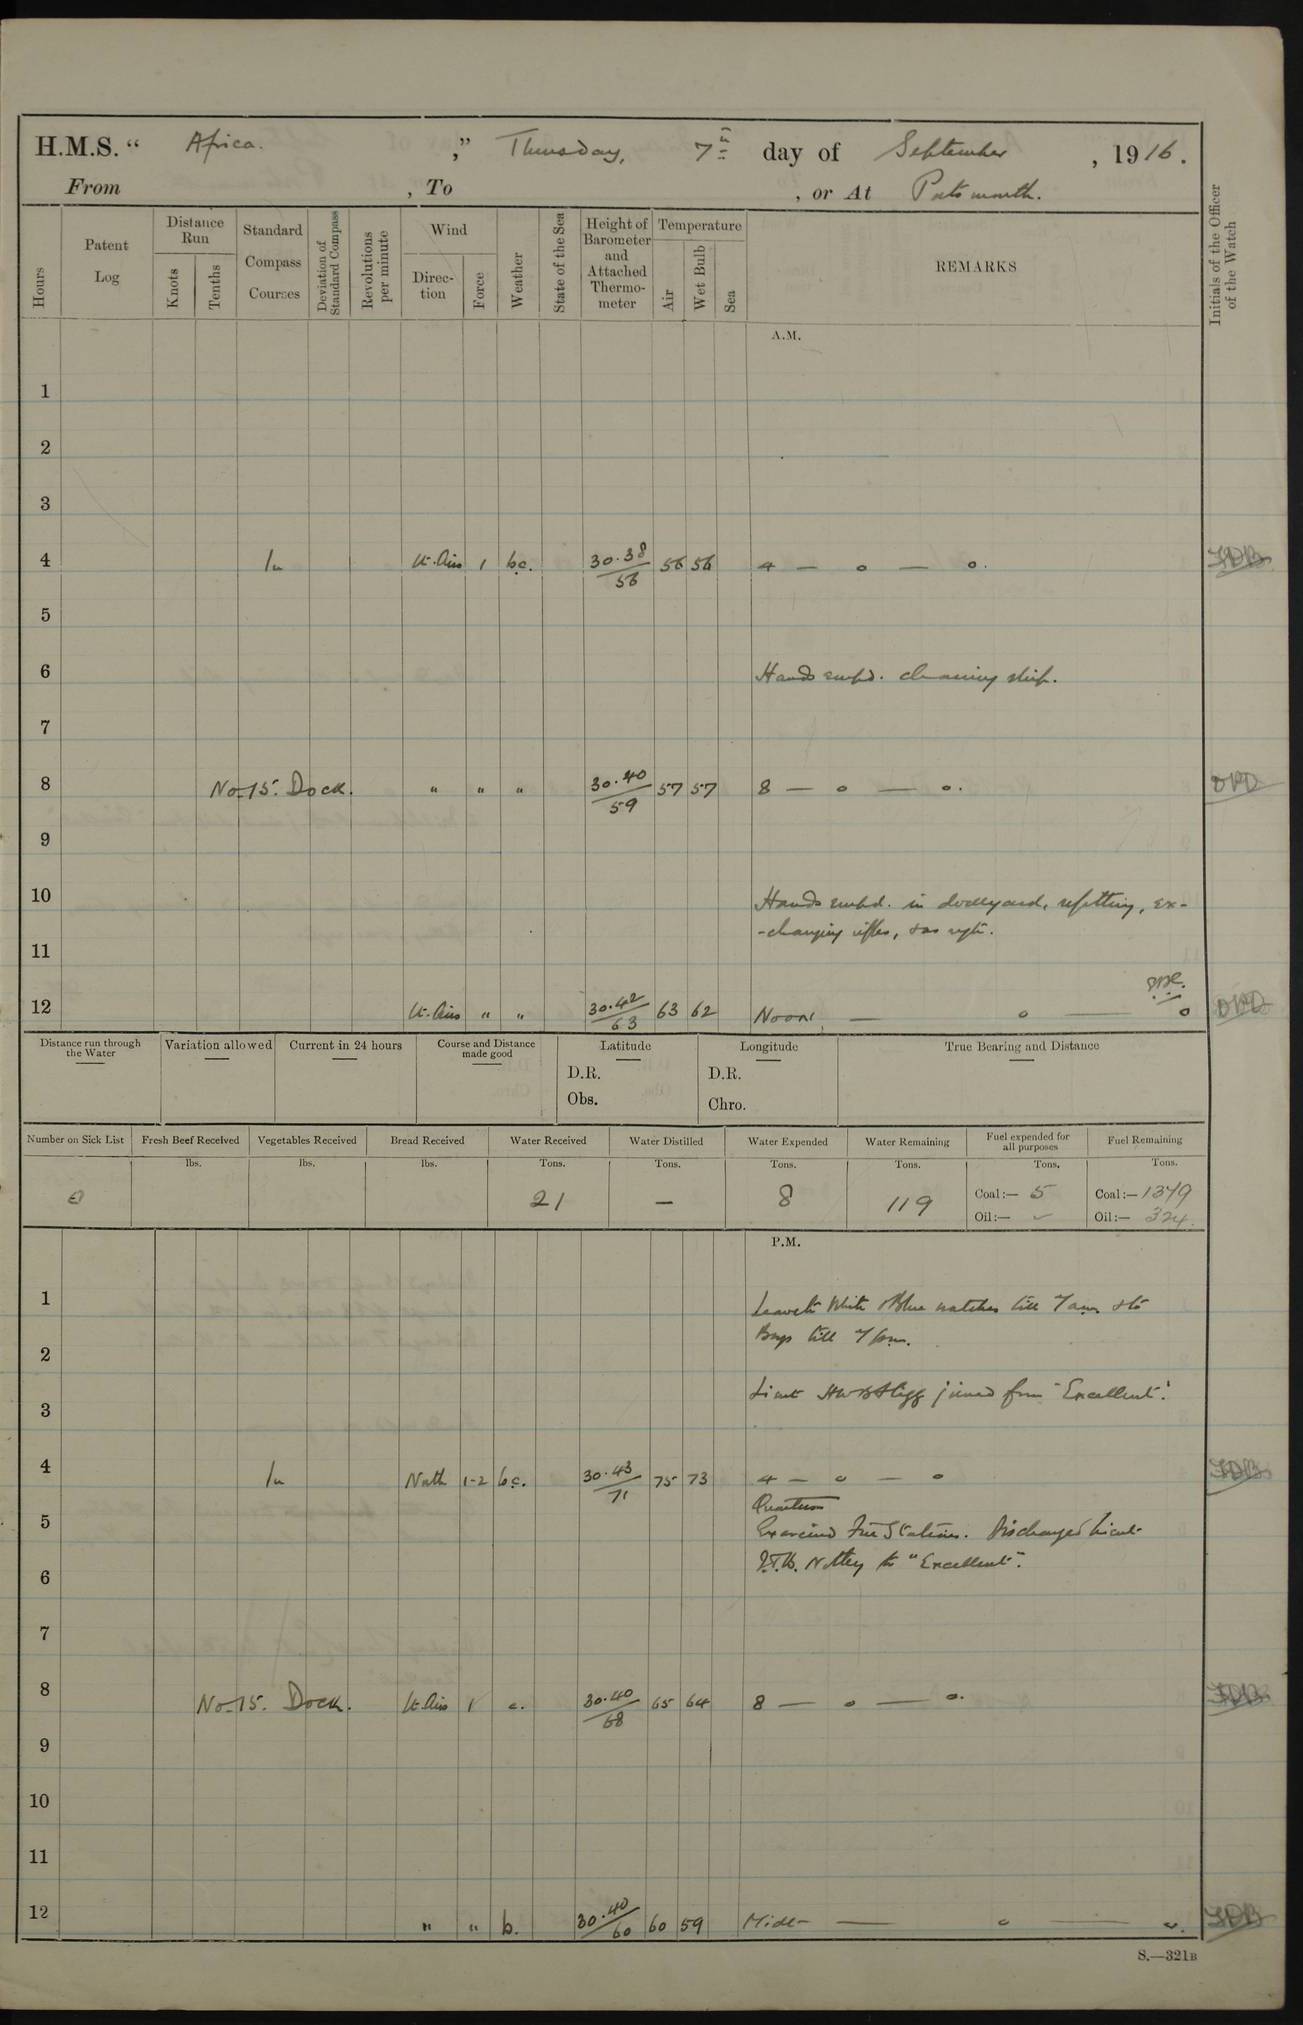 H.M.S. “ Africa. ,” Thursday, 7th day of September , 1916.
From , To , or At Portsmouth.
Hours
Patent Log
Distance Run
Knots
Tenths
Standard Compass Courses
Deviation of Standard Compass
Revolutions per minute
Wind
Direction
Force
Weather
State of the Sea
Height of Barometer and Attached Thermometer
Temperature
Air
Wet Bulb
Sea
REMARKS
Initials of the Officer of the Watch
A.M.
1
2
3
4 In Lt. Airs 1 bc. 30.38/58 56 56 4 — o — o.
5
6 Hands empd. cleaning ship.
7
8 No. 15. Dock. " " " 30.40/59 57 57 8 — o — o.
9
10 Hands empd. in dockyard, refitting, ex-
-changing rifles, & as reqte.
11
12 Lt. Airs " " 30.42/63 63 62 Noon — o — o
Distance run through the Water
Variation allowed
Current in 24 hours
Course and Distance made good
Latitude
D.R.
Obs.
Longitude
D.R.
Chro.
True Bearing and Distance
Number on Sick List
Fresh Beef Received
Vegetables Received
Bread Received
Water Received
Water Distilled
Water Expended
Water Remaining
Fuel expended for all purposes
Fuel Remaining
lbs. lbs. lbs. Tons. Tons. Tons. Tons. Tons. Tons.
21 — 8 119 Coal:— 5 Coal:— 1379
Oil:— Oil:— 324.
P.M.
1 Leave to White & Blue watches till 7 am & to
Boys till 7 pm.
2
3 Lieut joined from "Excellent".
4 In North 1-2 bc. 30.43/71 75 73 4 — o — o
Quarters
5 Exercised Fire Stations. Discharged Lieut
6 Nottley to "Excellent".
7
8 No. 15. Dock. Lt. Airs 1 c. 30.40/68 65 64 8 — o — o.
9
10
11
12 " " b. 30.40/60 60 59 Midt — o — o.
S.—321B